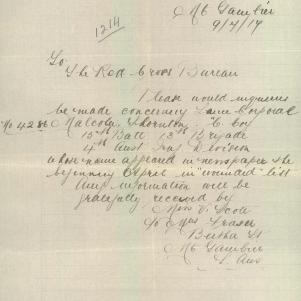 Mt Gambier
9/4/17
1214
To
The Red Cross Bureau
Please would inquiries
be made concerning Lance Corporal
No 4286 Malcolm Thornton "C" Coy
15th Batt 13th Brigade
4th Aust Inf Division
whose name appeared in newspaper the
beginning Cypres in "wounded" list
Any information will be
gratefully received by
Miss V. Scott
C/o Mrs Fraser
Bertha St
Mt Gambier
S. Aus